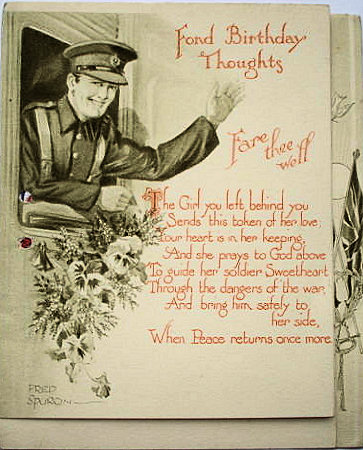 Fond Birthday
Thoughts
Fare
thee
well
The Girl you left behind you
Sends this token of her love;
Your heart is in her keeping,
And she prays to God above
To guide her soldier Sweetheart
Through the dangers of the war,
And bring him safely to
her side,
When Peace returns once more.
FRED
SPURGIN